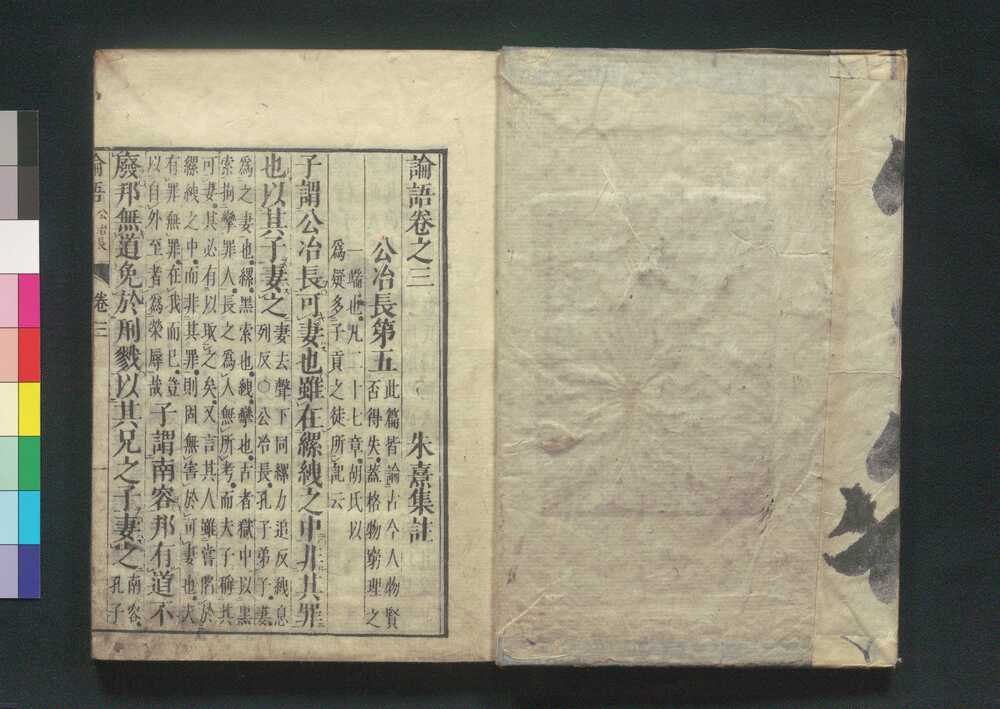 論語卷之三 朱熹集註
公冶長第五
此篇皆論古今人物賢
否得失蓋格物窮理之
一端也凡二十七章胡氏以
爲疑多子貢之徒所記云
子謂公冶長可妻也雖在縲絏之中非其罪
也以其子妻之
妻去聲下同縲力追反絏息
列反○公冶長孔子弟子妻
爲之妻也縲黑索也絏攣也古者獄中以黑
索拘攣罪人長之爲人無所考而夫子稱其
可妻其必有以取之矣又言其人雖嘗陷於
縲絏之中而非其罪則固無害於可妻也夫
有罪無罪在我而已豈
以自外至者爲榮辱哉
子謂南容邦有道不
廢邦無道免於刑戮以其兄之子妻之
南容
孔子
論語 公冶長 卷三 一